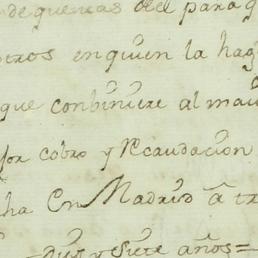 de quenas del para q
otros en quien la hag
que conbiniere al mai
jor cobro y Recaudacion
cha En Madrid a tr
dias y siete años =